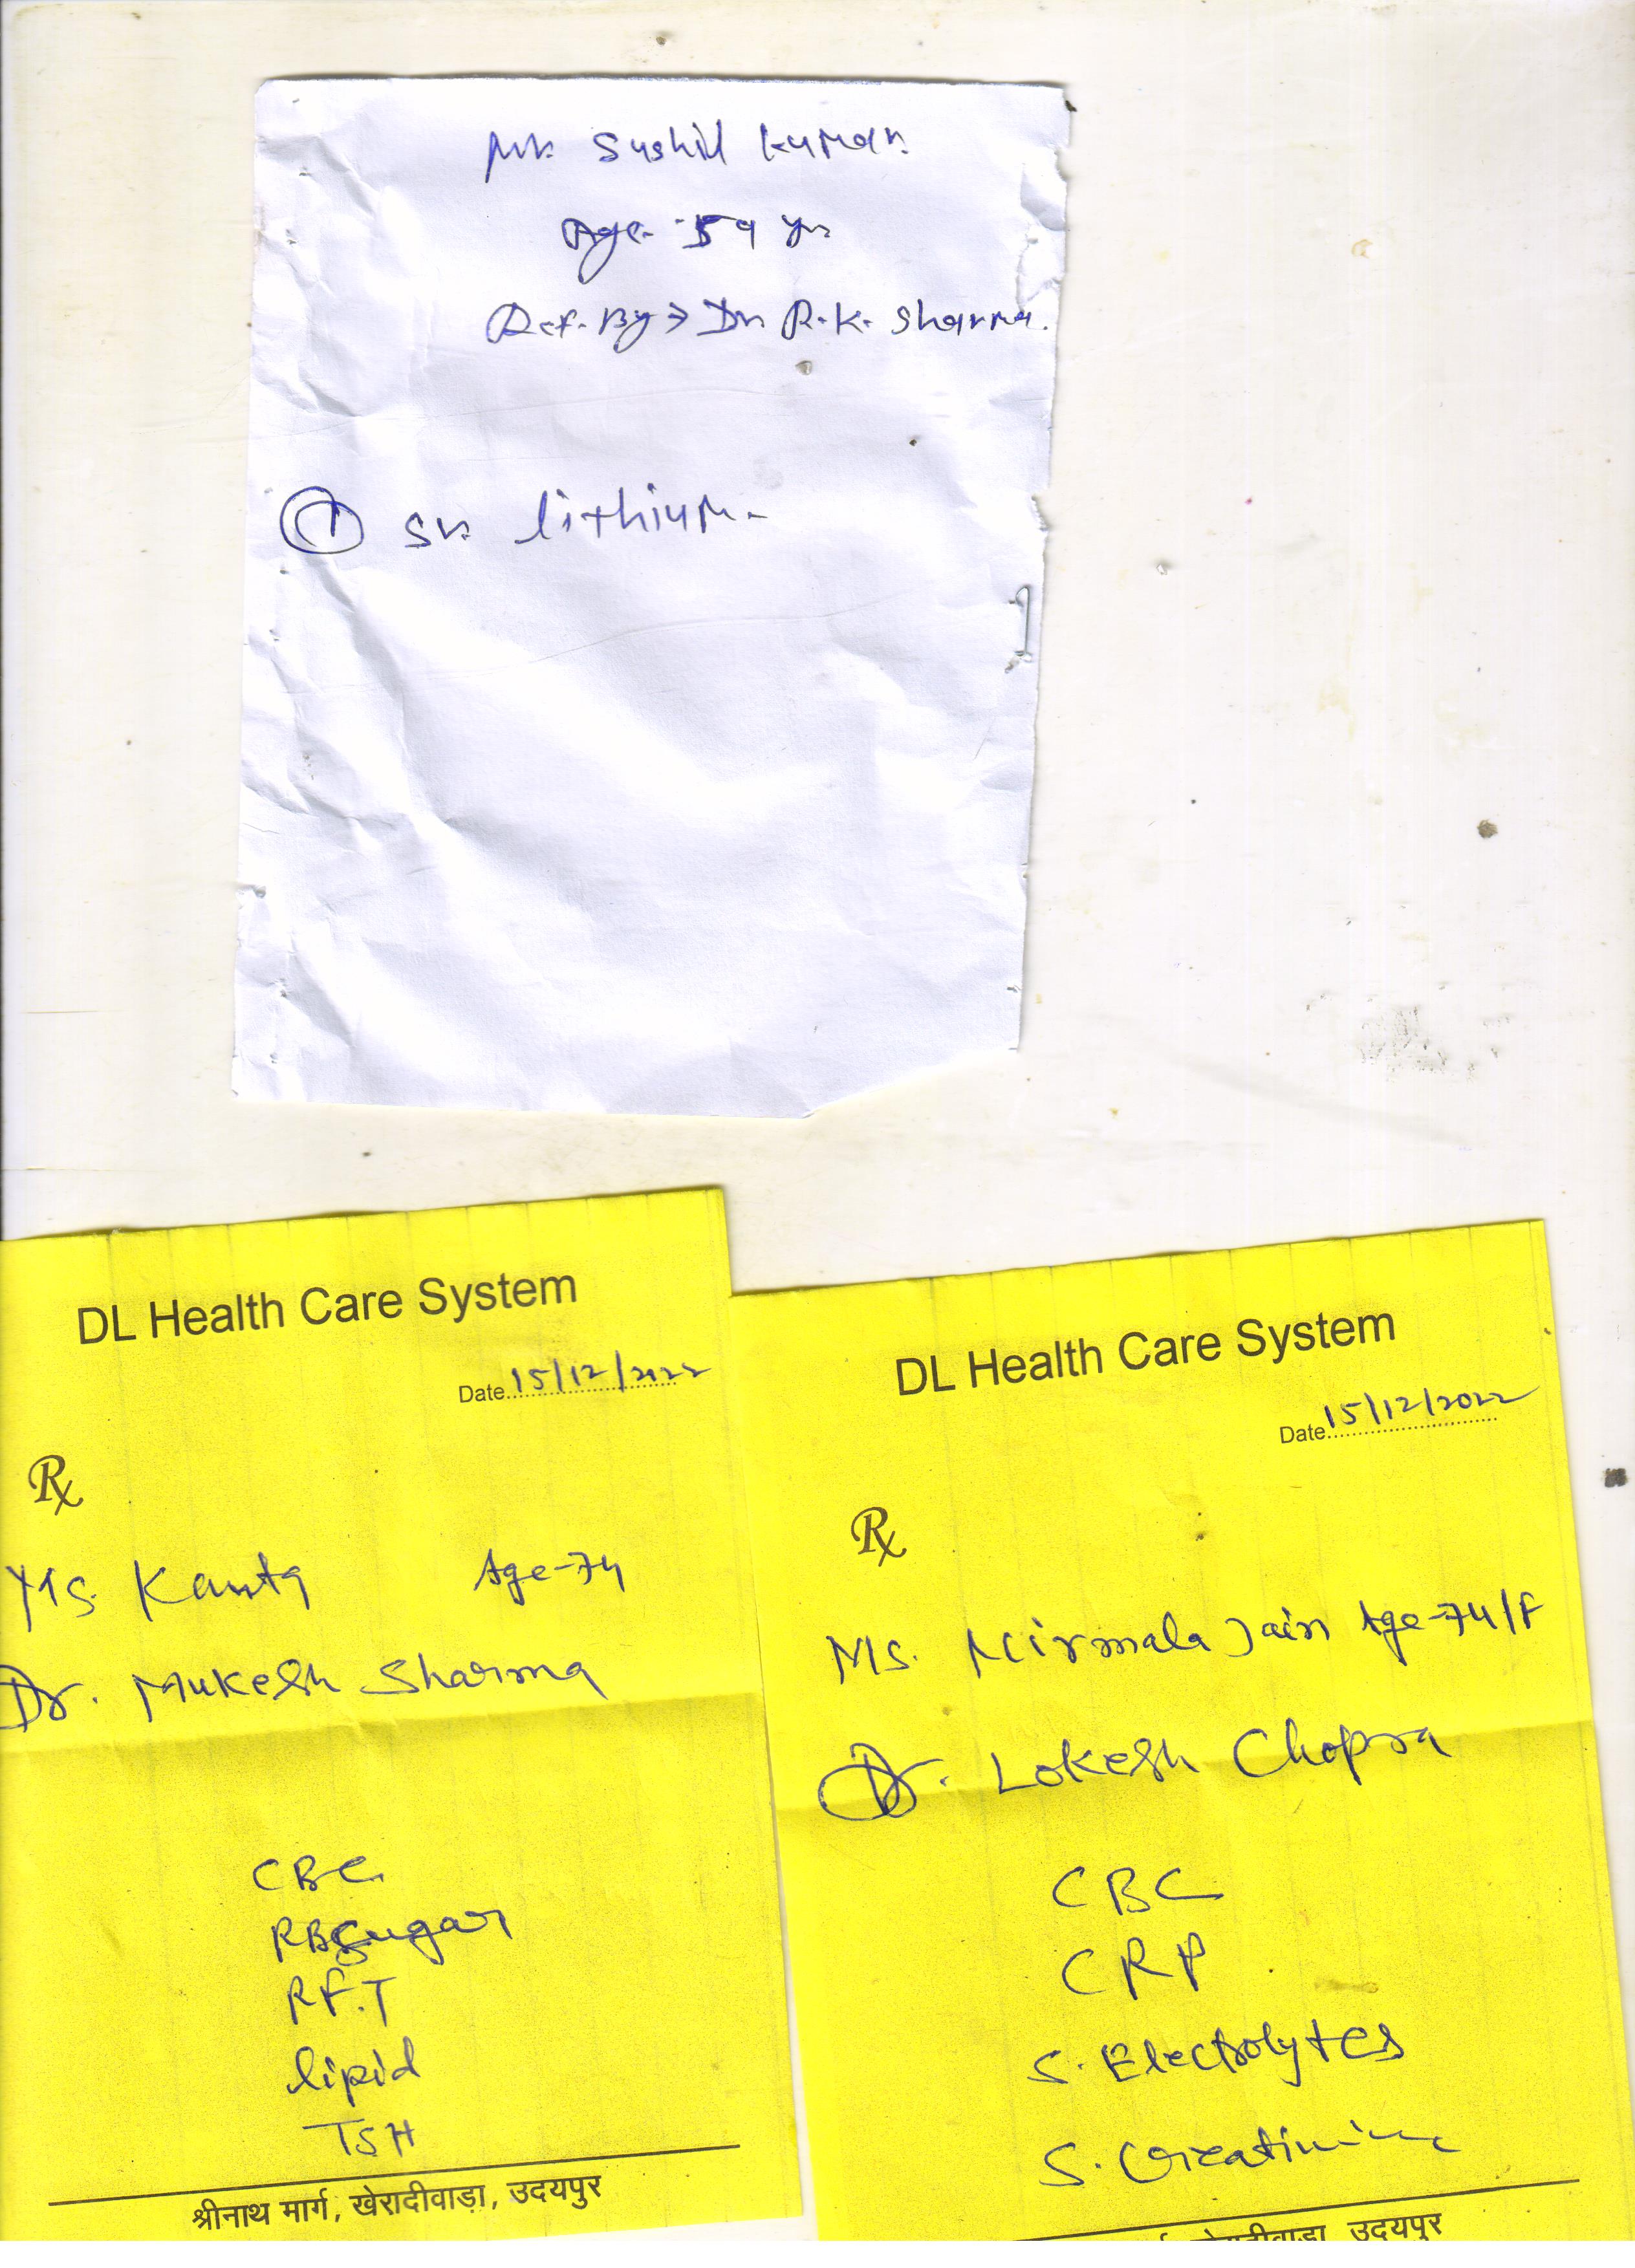 Mr. Sushil Kumar.
Age- 59 yr
Ref. By → Dr R.K. Sharma.
① Sr. lithium.
DL Health Care System
Date 15/12/2022
Rx
Ms. Kanta Age-74
Dr. Mukesh Sharma
CBC
RBSugar
RF.T
lipid
TSH
श्रीनाथ मार्ग, खेरादीवाड़ा, उदयपुर
DL Health Care System
Date 15/12/2022
Rx
Ms. Nirmala Jain Age-74/F
Dr. Lokesh Chopra
CBC
CRP
S. Electrolytes
S. Creatinine
खेरादीवाड़ा, उदयपुर